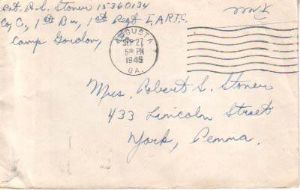 Pvt. R.S. Stoner 15360134
Co. C, 1st Bn, 1st Regt I.A.R.T.C.
Camp Gordon, Ga.
AUGUSTA
SEP 27
5 PM
1945
GA.
Mrs. Robert S. Stoner
433 Lincoln Street
York, Penna.